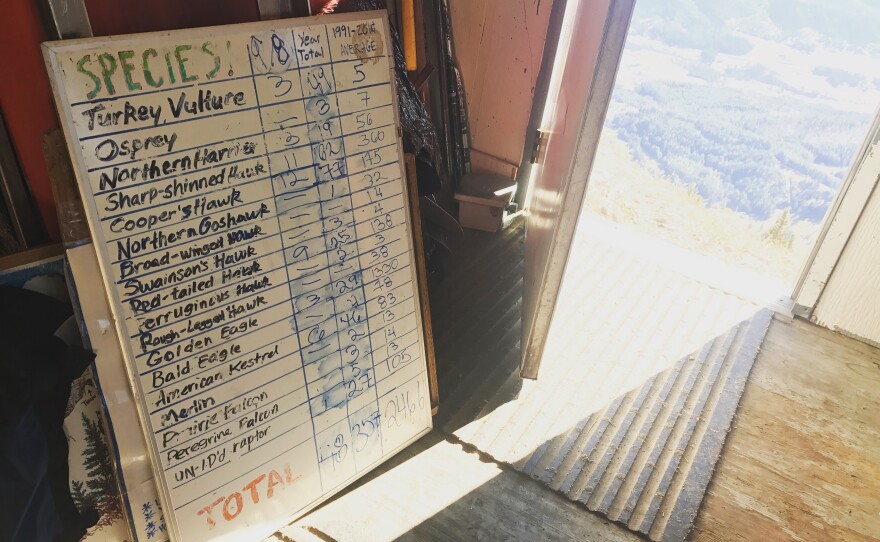 SPECIES! 9/8 Year Total 1991-2016 AVERAGE
Turkey Vulture 3 49 5
Osprey 3 7
Northern Harrier 3 9 56
Sharp-shinned Hawk 11 62 360
Cooper's Hawk 12 77 175
Northern Goshawk 1 22
Broad-winged Hawk 14
Swainson's Hawk 4
Red-tailed Hawk 9 25
Ferruginous Hawk 3
Rough-Legged Hawk 38
Golden Eagle 29
Bald Eagle 3 78
American Kestrel 6 46 83
Merlin 2
Prairie Falcon 4
Peregrine Falcon
UN-I.D'd raptor 27 105
TOTAL 48 357 2466